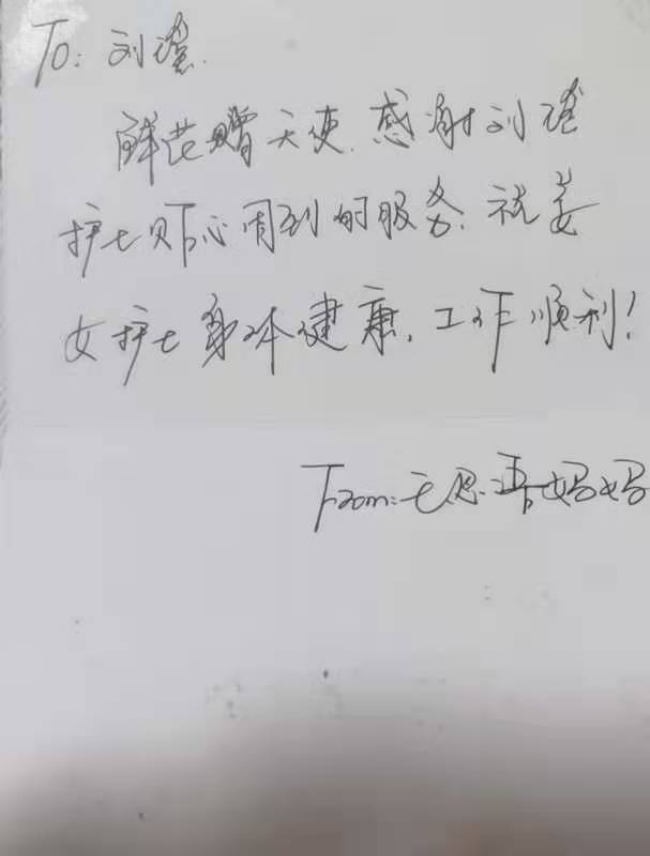 To: 刘
鲜花赠天使.感谢刘
护士贴心周到的服务.祝美
女护士身体健康,工作顺利!
From: 妈妈